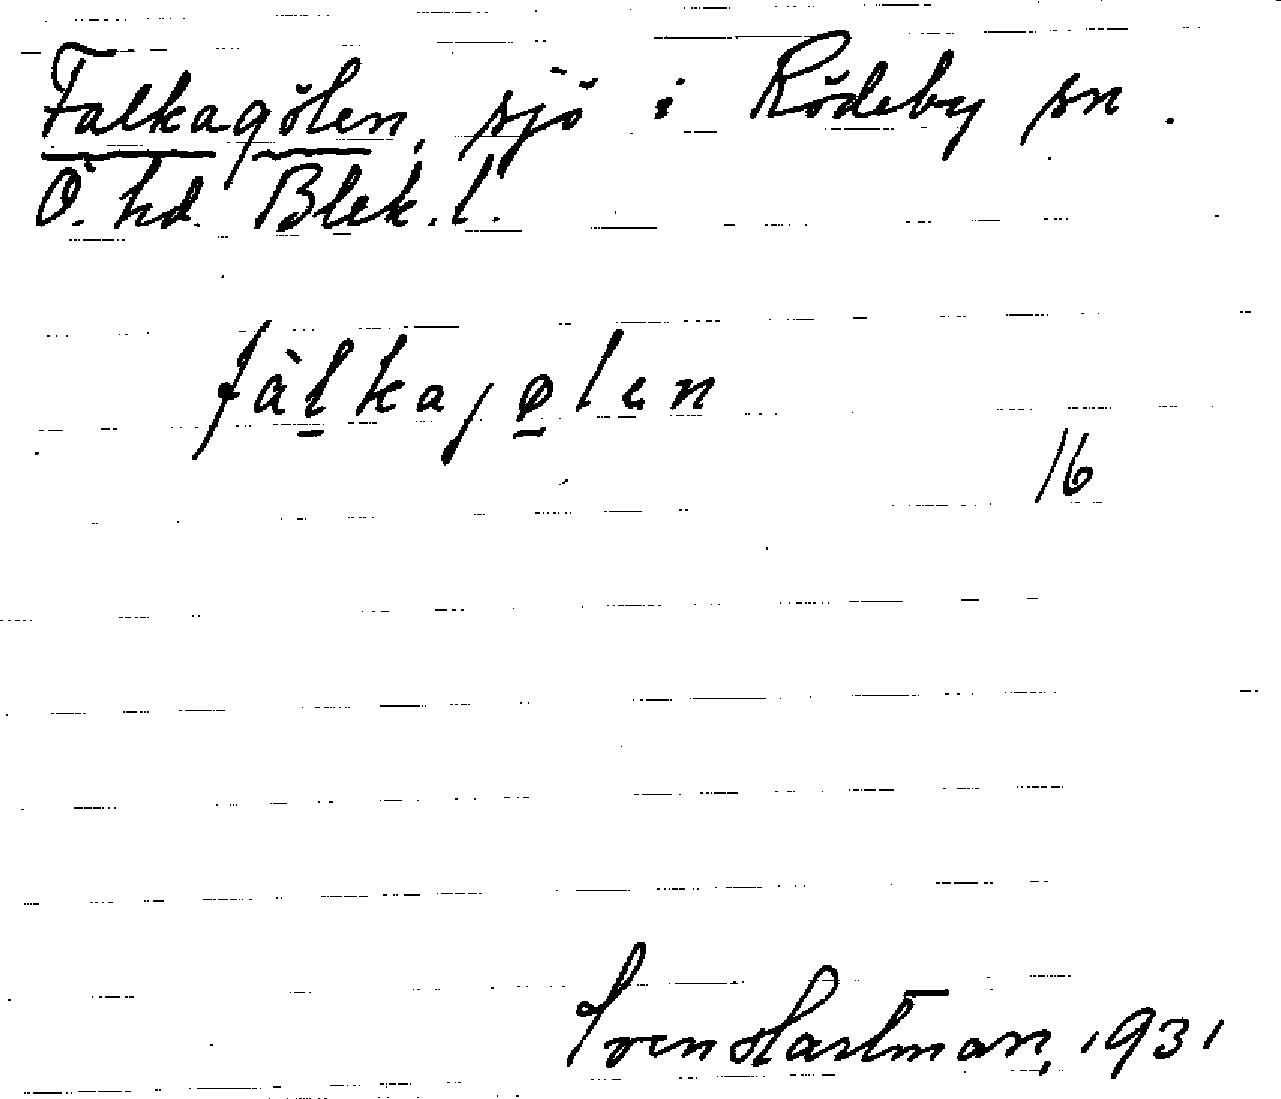 Falkagölen, sjö i Rödeby sn.
Ö. hd. Blek. l.
fàlkajølen
16
Sven Hartman, 1931